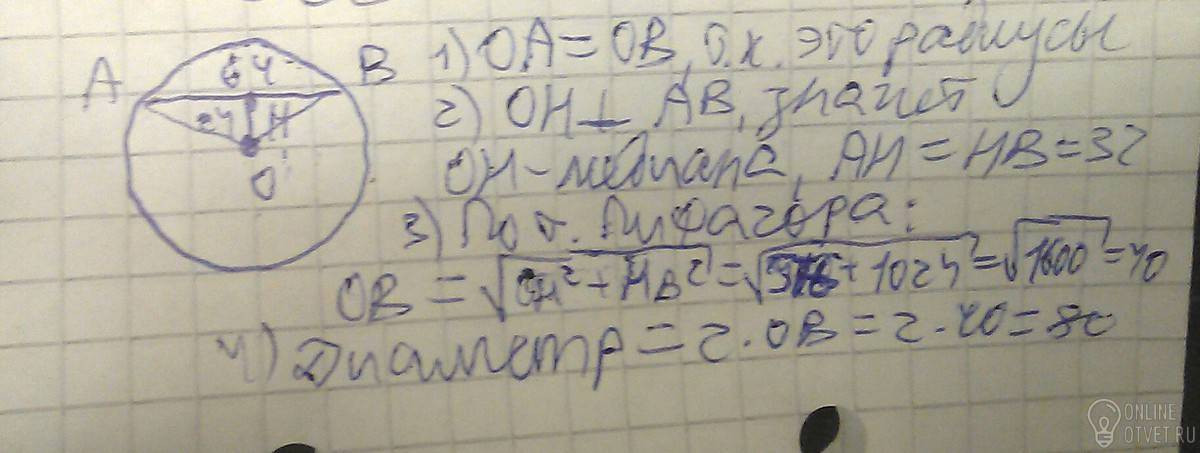 A 64 B
24 H
O
1) OA = OB, т.к. это радиусы
2) OH ⊥ AB, значит
OH - медиана, AH = HB = 32
3) По т. Пифагора:
OB = √OH² + HB² = √576 + 1024 = √1600 = 40
4) Диаметр = 2 · OB = 2 · 40 = 80
ONLINE
OTVET.RU